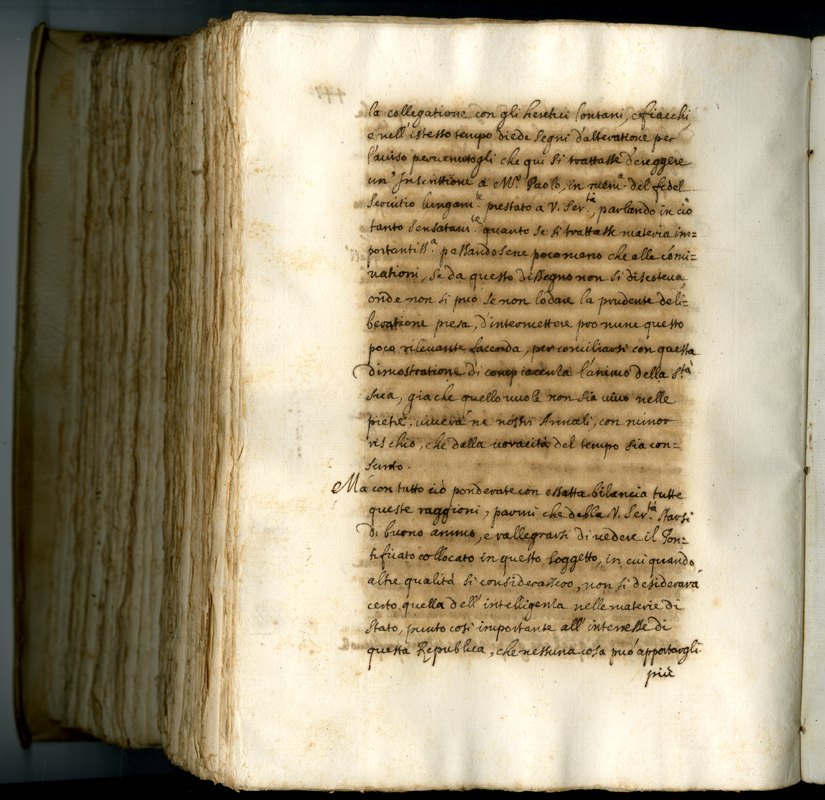 la collegatione con gli heretici lontani, e fiacchi
e nell'istesso tempo diede segni d'alteratione per
l'auuiso peruenutogli che qui si trattasse d'ereggere
un'Inscrittione a M.ro Paolo, in mem.a del fedel
seruitio lungam.te prestato a V. Ser.tà, parlando in ciò
tanto sensatam.te quanto se si trattasse materia im=
portantiss.a passandosene poco meno che alle comi=
nationi, se da questo dissegno non si discoteua,
onde non si può se non lodare la prudente deli=
beratione presa, d'intermettere pro nunc questo
poco rileuante facenda, per conciliarsi con questa
dimostratione di compiacenza l'animo della S.tà
sua, gia che quello uuole non sia uiuo nelle
pietre, uiuerà ne nostri Annali, con minor
rischio, che dalla uoracità del tempo sia con=
sunto.
Mà con tutto ciò ponderate con essatta bilancia tutte
queste raggioni, parmi che debba V. Ser.tà starsi
di buono animo, e rallegrarsi di uedere il Pon=
tificato collocato in questo soggetto, in cui quando
altre qualità si considerassero, non si desiderarà
certo quella dell'intelligenza nelle materie di
stato, punto così importante all'interesse di
questa Republica, che nessuna cosa può apportargli
più